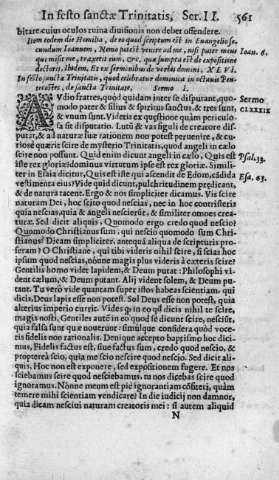 In festo sanctæ Trinitatis, Ser. II. 561
bitare cuius oculos ruina diuisionis non deber offendere.
Item eodem die Homilia, de eo quod scriptum est in Euangelio secundum
Ioannem, Nemo potest venire ad me, nisi pater meus
qui misit me, traxerit eum, &c. quæ sumpta est de expositione
dicti loci, ibidem, Et ex sermonibus de verbis domini. XLVI.
In festo sanctæ Trinitatis, quod celebratur dominica in octauis Pentecostes,
de sancta Trinitate. Sermo 1.
Ioan. 6.
AVdio fratres, quòd quidam inter se disputare, quomodo
pater & filius & spiritus sanctus, & tres sunt,
& vnum sunt. Videris ex quæstione quàm periculosa
sit disputatio. Lutū & vas figuli de creatore disputat,
& ad naturæ suæ rationem non potest peruenire, & curiosè
quærit scire de mysterio Trinitatis, quod angeli in cælo
scire non possunt. Quid enim dicunt angeli in cælo, Quis est
iste rex gloriæ? dominus virtutum ipse est rex gloriæ. Similiter
in Esaia dicitur, Quis est iste qui ascendit de Edom, cādida
vestimenta eius? Vide quid dicunt, pulchritudinem prædicant,
& de natura tacent. Ergo & nos simpliciter dicamus. Vis scire
naturam Dei, hoc scito quod nescias, nec in hoc contristeris
quia nescias, quia & angeli nescierūt, & similiter omnes creaturæ.
Sed dicit aliquis, Quomodo ergo credo quod nescio?
Quomodo Christianus sum, qui nescio quomodo sim Christianus?
Dicam simpliciter. anteq̃ aliqua de scripturis proferam?
O Christiane, qui tibi videris nihil scire, si scias hoc
ipsum quod nescias, nónne magis plus videris à cæteris scire?
Gentilis homo videt lapidem, & Deum putat: Philosophi vident
cælum, & Deum putant. Alij vidēt solem, & Deum putant.
Tu verò vide quantum super istos habeas scientiam, qui
dicis, Deus lapis esse non potest. Sol Deus esse non potest, quia
alterius imperio currit. Vide ergo in eo quòd dicis nihil te scire,
magis nosti. Gentiles autē in eo quod se dicunt scire, nesciūt,
quia falsa sunt quæ nouerunt: simúlque considera quòd voceris
fidelis non rationalis. Denique accepto baptismo hoc dicimus,
Fidelis factus est, siue factus sum, credo quod nescio, &
propterea scio, quia me scio nescire quod nescio. Sed dicit aliquis,
Hoc non est exponere, sed expositionem fugere. Et nos
sciebamus scire quod nesciebamus, tu nos dicebas scire quod
ignoramus. Nónne meum est pie ignorantiam cōfiteri, quàm
temerè mihi scientiam vendicare? In die iudicij non damnor,
quia dicam nesciui naturam creatoris mei: si autem aliquid
N
Sermo
CLXXXIX
Psal. 23.
Esa. 63.